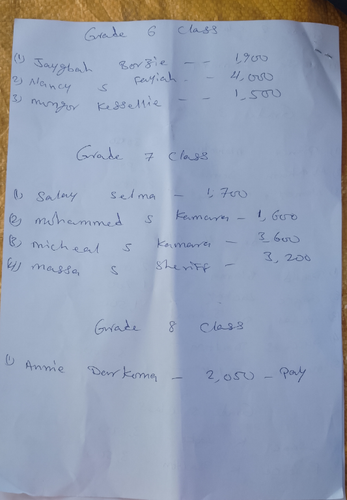 Grade 6 Class
(1) Jaygbah Borbie -- 1,900
2) Nancy S Fayiah -- 4,000
3) Kessellie -- 1,500
Grade 7 Class
(1) Satay Selma - 1,700
(2) Mohammed S Kamara - 1,600
(3) Micheal S Kamara - 3,600
(4) Massa S Sheriff - 3,200
Grade 8 Class
(1) Annie Darkoma - 2,050 - Pay